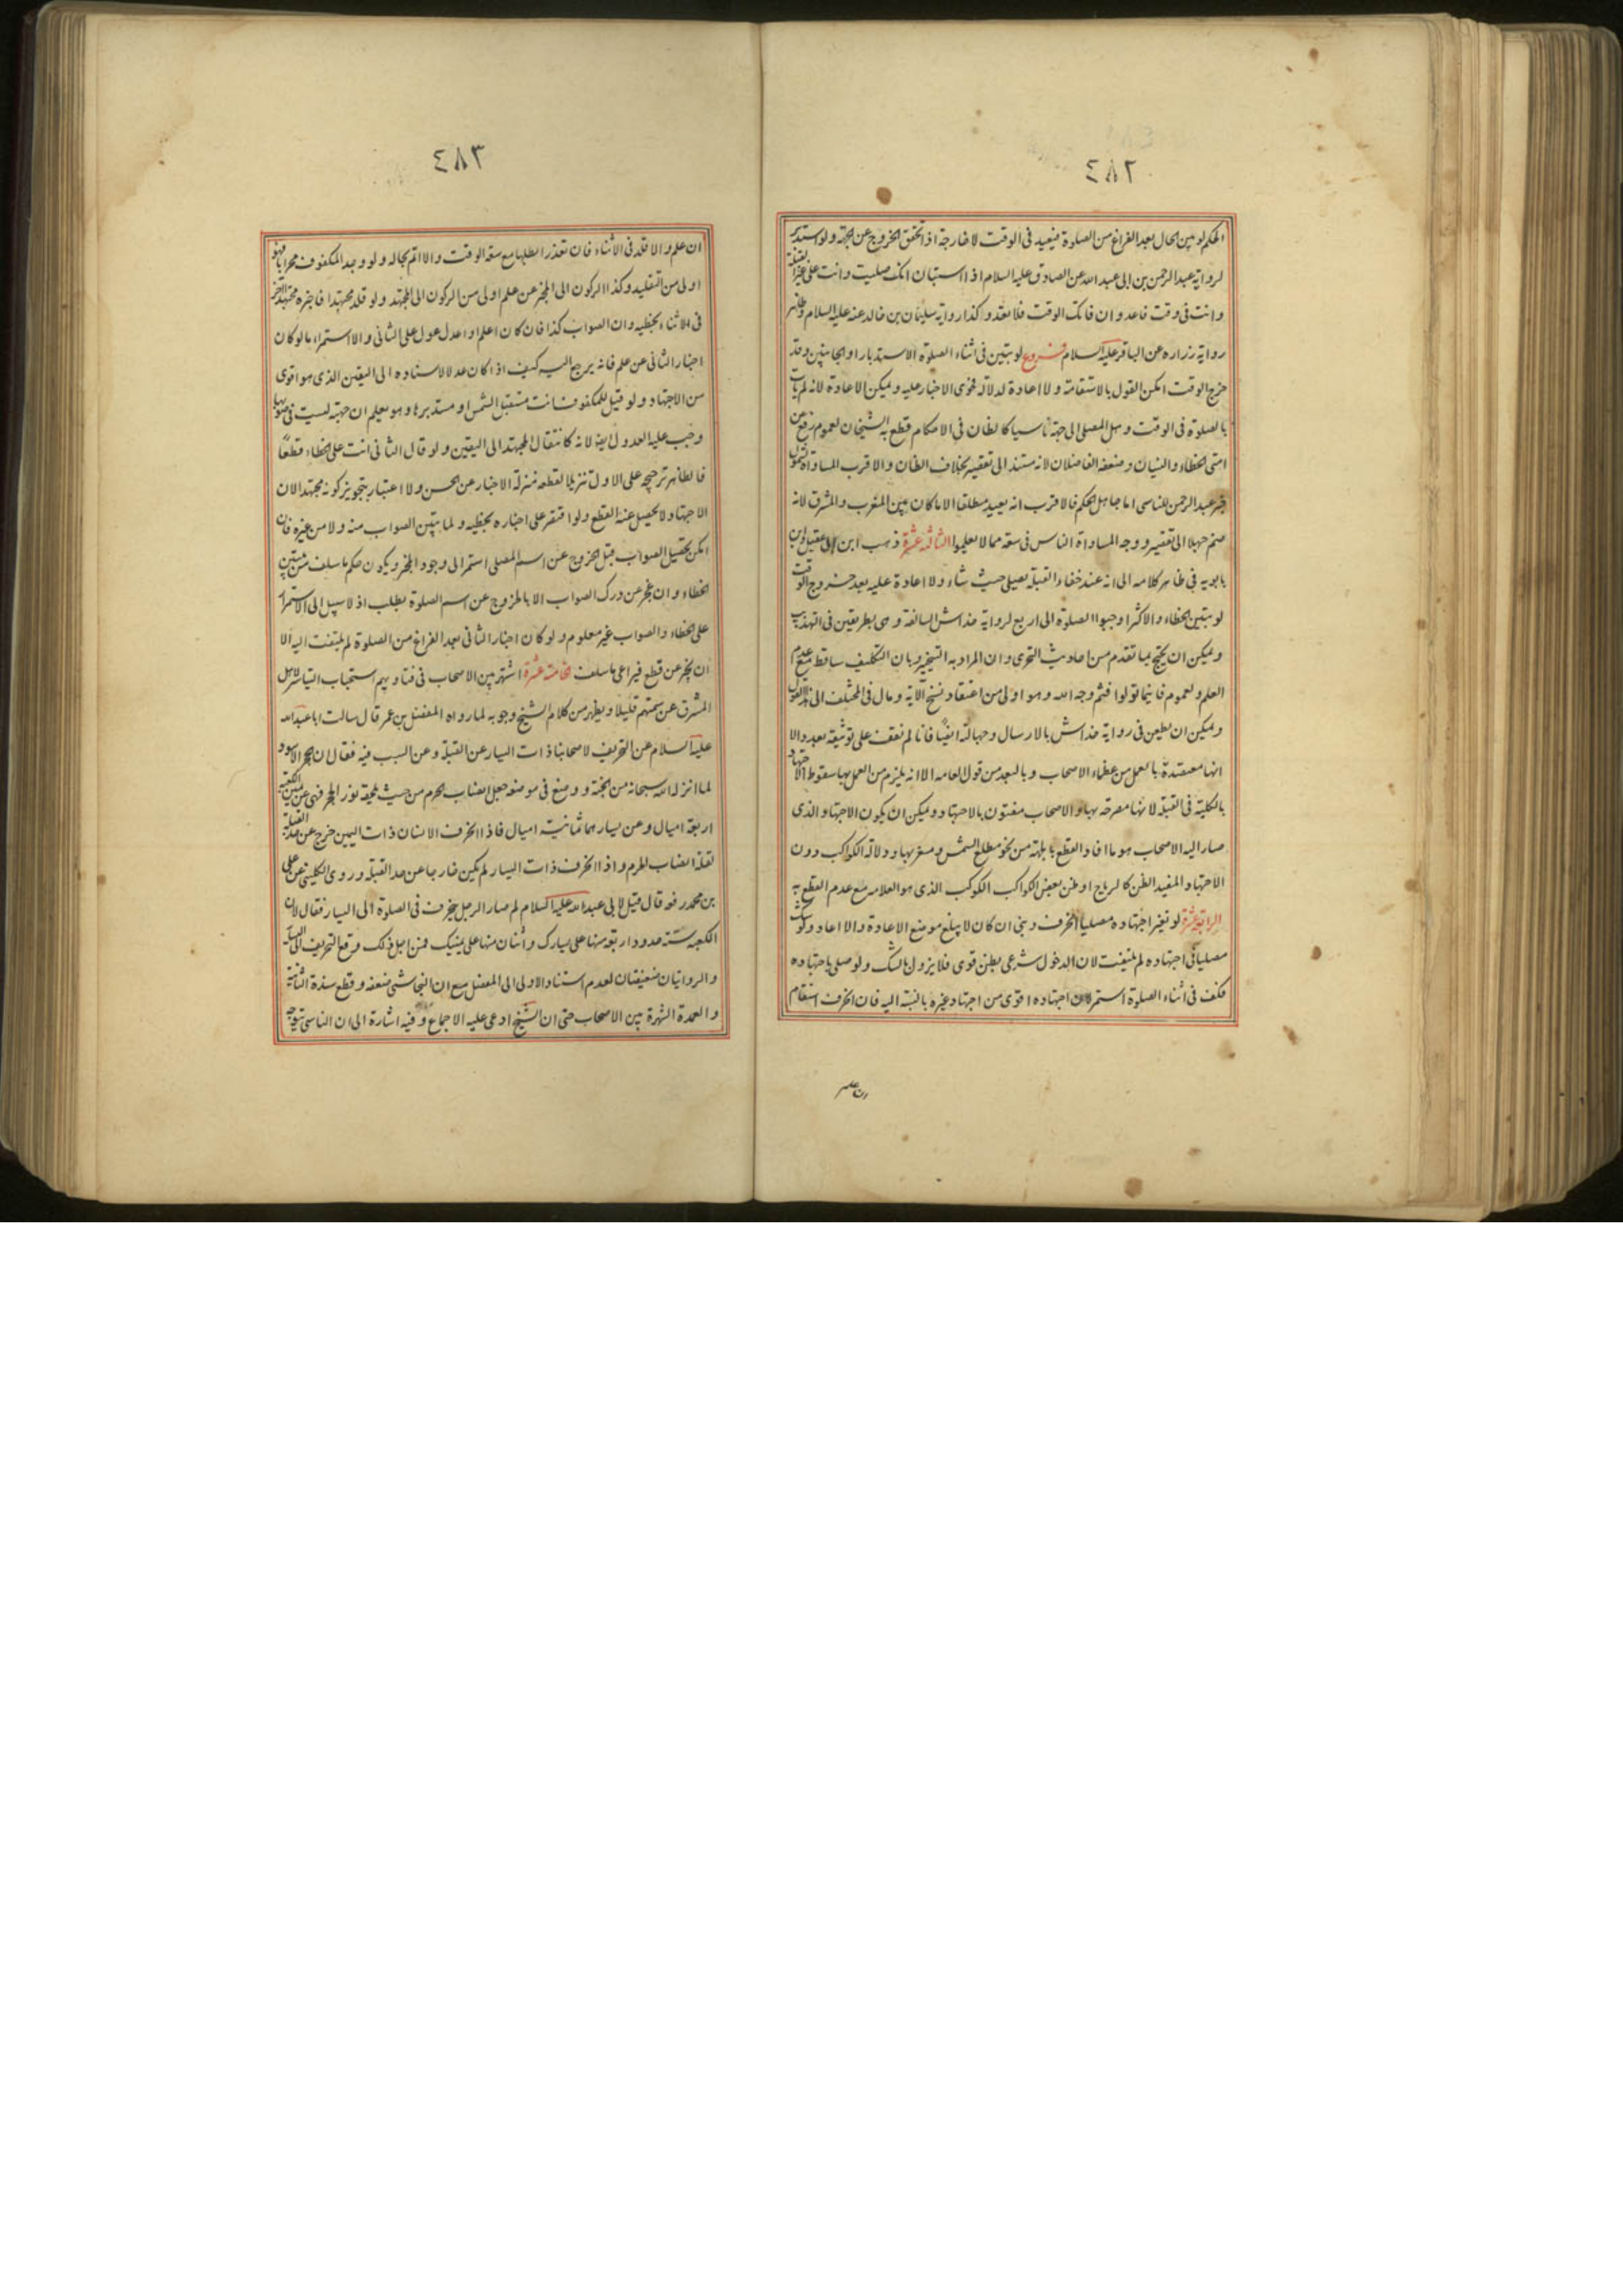 ٤٨٢
الحكم لو تبين الحال بعد الفراغ من الصلوة فيعيد في الوقت لا خارجه اذا تحقق الخروج عن الجهة ولو استدبر
لرواية عبد الرحمن بن ابي عبد الله عن الصادق عليه السلام اذا استبان انك صليت وانت على غير القبلة
وانت في وقت فاعد وان فاتك الوقت فلا تعد وكذا رواية سليمان بن خالد عنه عليه السلام وظاهر
رواية زراره عن الباقر عليه السلام فروع لو تبين في اثناء الصلوة الاستدبار او الجانبين وقد
خرج الوقت امكن القول بالاستقامة ولا اعادة لدلالة فحوى الاخبار عليه ويمكن الاعادة لانه لم يات
بالصلوة في الوقت وهل المصلي الى جهة ناسيا كالظان في الاحكام قطع به الشيخان لعموم رفع عن
امتي الخطاء والنسيان وضعفه الفاضلان لانه مستند الى تقصيره بخلاف الظان والاقرب المساواة لشمول
خبر عبد الرحمن للناسي اما جاهل الحكم فالاقرب انه يعيد مطلقا الا ما كان بين المغرب والمشرق لانه
ضم جهلا الى تقصير ووجه المساواة الناس في سعة مما لا يعلموا الثالثة عشرة ذهب ابن ابي عقيل وابن
بابويه في ظاهر كلامه الى انه عند خفاء القبلة يصلي حيث شاء ولا اعادة عليه بعد خروج الوقت
لو تبين الخطاء والاكثر اوجبوا الصلوة الى اربع لرواية خداش السالفة وهي بطريقين في التهذيب
ويمكن ان يحتج بما تقدم من احاديث التحري وان المراد به التخيير وبان التكليف ساقط مع عدم
العلم ولعموم فاينما تولوا فثم وجه الله وهو اولى من اعتقاد نسخ الاية ومال في المختلف الى هذا القول
ويمكن ان يطعن في رواية خداش بالارسال وجهالة ايضًا فانا لم نقف على توثيقه بعد والا
انها معتضدة بالعمل من عظماء الاصحاب وبالبعد من قول العامه الا انه يلزم من العمل بها سقوط الاجتهاد
بالكلية في القبلة لانها مصرحة بها والاصحاب مفتون بالاجتهاد ويمكن ان يكون الاجتهاد الذي
صار اليه الاصحاب هو ما افاد القطع بالجهة من نحو مطلع الشمس ومغربها ودلالة الكواكب دون
الاجتهاد المفيد الظن كالرياح او ظن بعض الكواكب الكوكب الذي هو العلامه مع عدم القطع به
الرابعة عشرة لو تغير اجتهاده مصليا انحرف وبنى ان كان لا يبلغ موضع الاعادة والا اعاد ولو شك
مصليا في اجتهاده لم يلتفت لان الدخول شرعي بظن قوي فلا يزول بالشك ولو صلى باجتهاده
فكف في اثناء الصلوة استمر لان اجتهاده اقوى من اجتهاد غيره بالنسبة اليه فان انحرف استقام
ان علم
٤٨٣
ان علم والا قلد في الاثناء فان تعذر ابطلها مع سعة الوقت والا اتم بحاله ولو وجد المكفوف محرابا فهو
اولى من التقليد وكذا الركون الى المخبر عن علم اولى من الركون الى المجتهد ولو قلد مجتهدا فاخبره مجتهد اخر
في الاثناء بخطيه وان الصواب كذا فان كان اعلم او اعدل عول على الثاني والا استمر اما لو كان
اخبار الثاني عن علم فانه يرجع اليه كيف اذا كان عدلا لاستناده الى اليقين الذي هو اقوى
من الاجتهاد ولو قيل للمكفوف انت مستقبل الشمس او مستدبرها وهو يعلم ان جهته ليست في صوبها
وجب عليه العدول ايضا لانه كانتقال المجتهد الى اليقين ولو قال الثاني انت على الخطاء قطعًا
فالظاهر ترجيحه على الاول تنزيلا لقطعه منزلة الاخبار عن الحسن ولا اعتبار بتجويز كونه مجتهدا لان
الاجتهاد لا يحصل عنه القطع ولو اقتصر على اخباره بخطيه ولما يتبين الصواب منه ولا من غيره فان
امكن تحصيل الصواب قبل الخروج عن اسم المصلي استمر الى وجود المخبر ويكون حكم ما سلف حكم تبين
الخطاء وان عجز عن درك الصواب الا بالخروج عن اسم الصلوة بطلت اذ لا سبيل الى الاستمرار
على الخطاء والصواب غير معلوم ولو كان اخبار الثاني بعد الفراغ من الصلوة لم يلتفت اليه الا
ان يخبر عن قطع فيراعى ما سلف الخامسة عشرة اشتهر بين الاصحاب في فتاويهم استحباب التياسر لاهل
المشرق عن سمتهم قليلا ويظهر من كلام الشيخ وجوبه لما رواه المفضل بن عمر قال سالت ابا عبد الله
عليه السلام عن التحريف لاصحابنا ذات اليسار عن القبلة وعن السبب فيه فقال ان الحجر الاسود
لما انزله الله سبحانه من الجنة ووضع في موضعه جعل انصاب الحرم من حيث لحقه نور الحجر فهي عن يمين الكعبة
اربعة اميال وعن يسارها ثمانية اميال فاذا انحرف الانسان ذات اليمين خرج عن حد القبلة
لقلة انصاب الحرم واذا انحرف ذات اليسار لم يكن خارجا عن حد القبلة وروى الكليني عن علي
بن محمد رفعه قال قيل لابي عبد الله عليه السلام لم صار الرجل ينحرف في الصلوة الى اليسار فقال لان
الكعبه ستة حدود اربعة منها على يسارك واثنان منها على يمينك فمن اجل ذلك وقع التحريف الى اليسار
والروايتان ضعيفتان لعدم استناد الاولى الى المفضل مع ان النجاشي ضعفه وقطع سند الثانية
والعمدة الشهرة بين الاصحاب حتى ان الشيخ ادعى عليه الاجماع وفيه اشارة الى ان الناس يتوجه